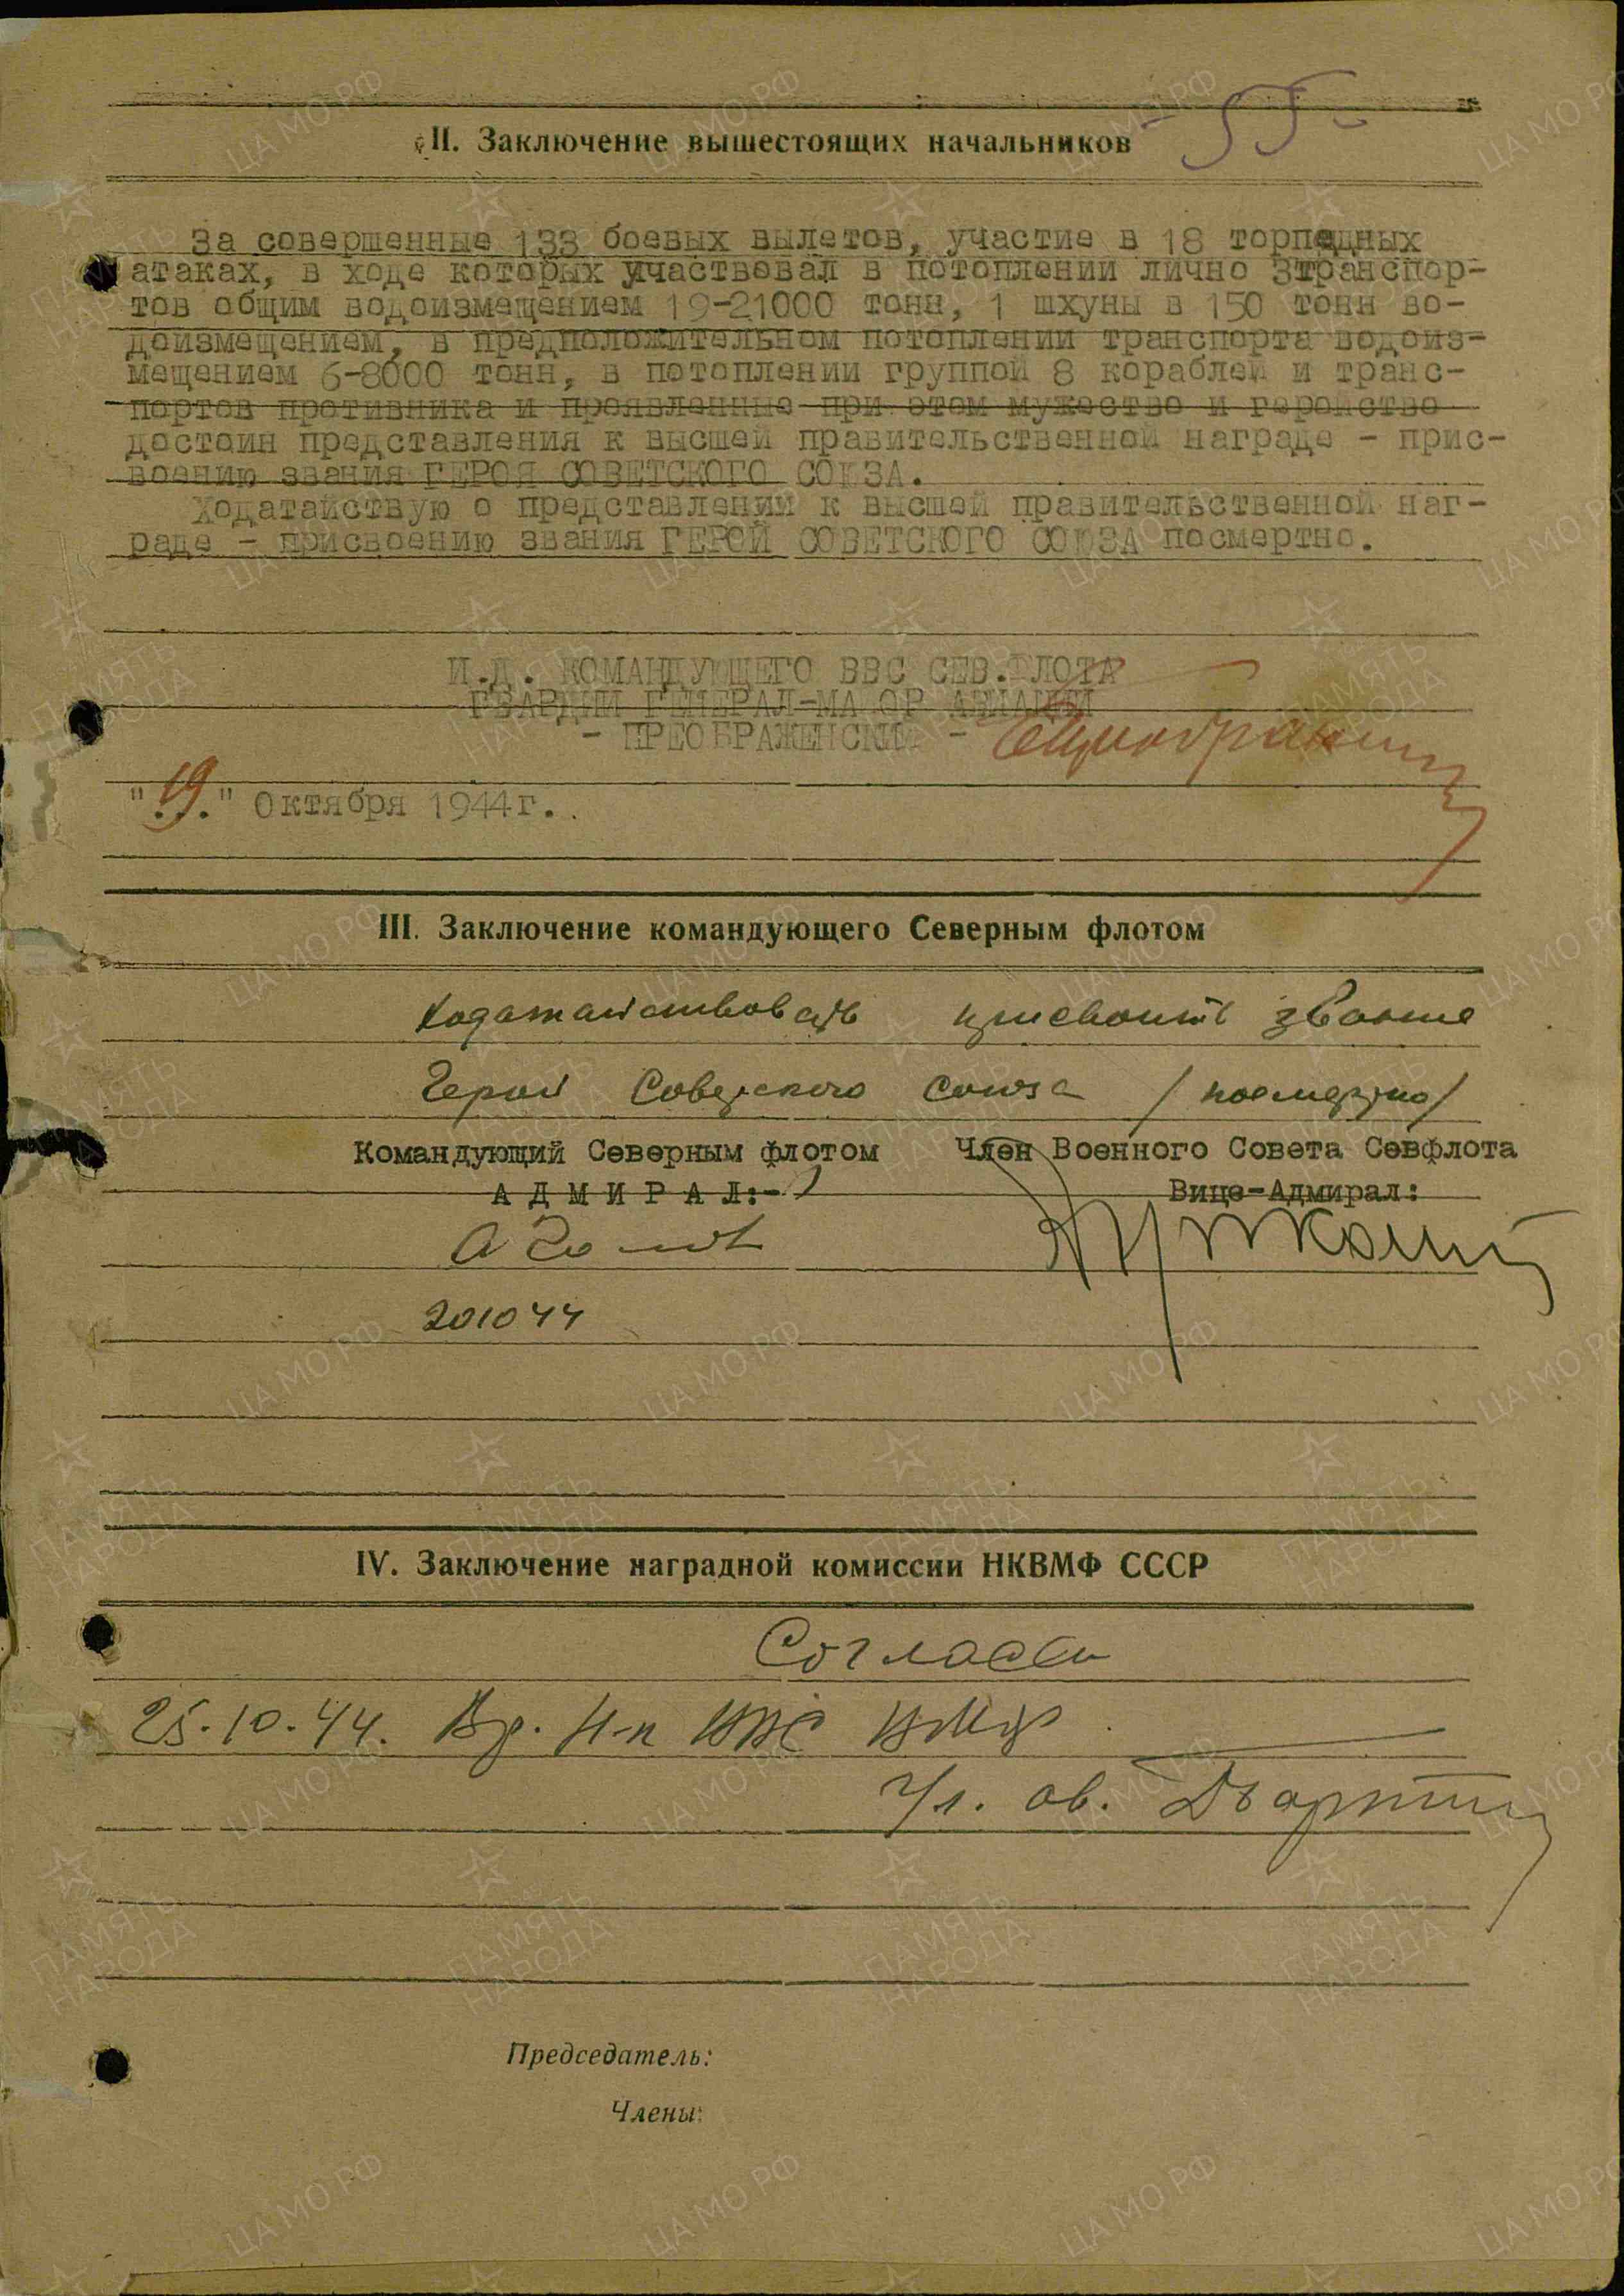 - 55 -
II. Заключение вышестоящих начальников
За совершенные 133 боевых вылетов, участие в 18 торпедных
атаках, в ходе которых участвовал в потоплении лично 3транспор-
тов общим водоизмещением 19-21000 тонн, 1 шхуны в 150 тонн во-
доизмещением, в предположительном потоплении транспорта водоиз-
мещением 6-8000 тонн, в потоплении группой 8 кораблей и транс-
портов противника и проявленные при этом мужество и геройство
достоин представления к высшей правительственной награде - прис-
воению звания ГЕРОЯ СОВЕТСКОГО СОЮЗА.
Ходатайствую о представлении к высшей правительственной наг-
раде - присвоению звания ГЕРОЙ СОВЕТСКОГО СОЮЗА посмертно.
И.Д. КОМАНДУЮЩЕГО ВВС СЕВ.ФЛОТА
ГВАРДИИ ГЕНЕРАЛ-МАЙОР АВИАЦИИ
- ПРЕОБРАЖЕНСКИЙ -
"19." Октября 1944г.
III. Заключение командующего Северным флотом
Ходатайствовать присвоить звание
Герой Советского Союза /посмертно/
Командующий Северным флотом Член Военного Совета Севфлота
АДМИРАЛ:- Вице-Адмирал:
201044
IV. Заключение наградной комиссии НКВМФ СССР
Согласен
25.10.44. Вр. Н-к ВВС ВМФ
Председатель:
Члены:
ЦА МО РФ
ПАМЯТЬ НАРОДА